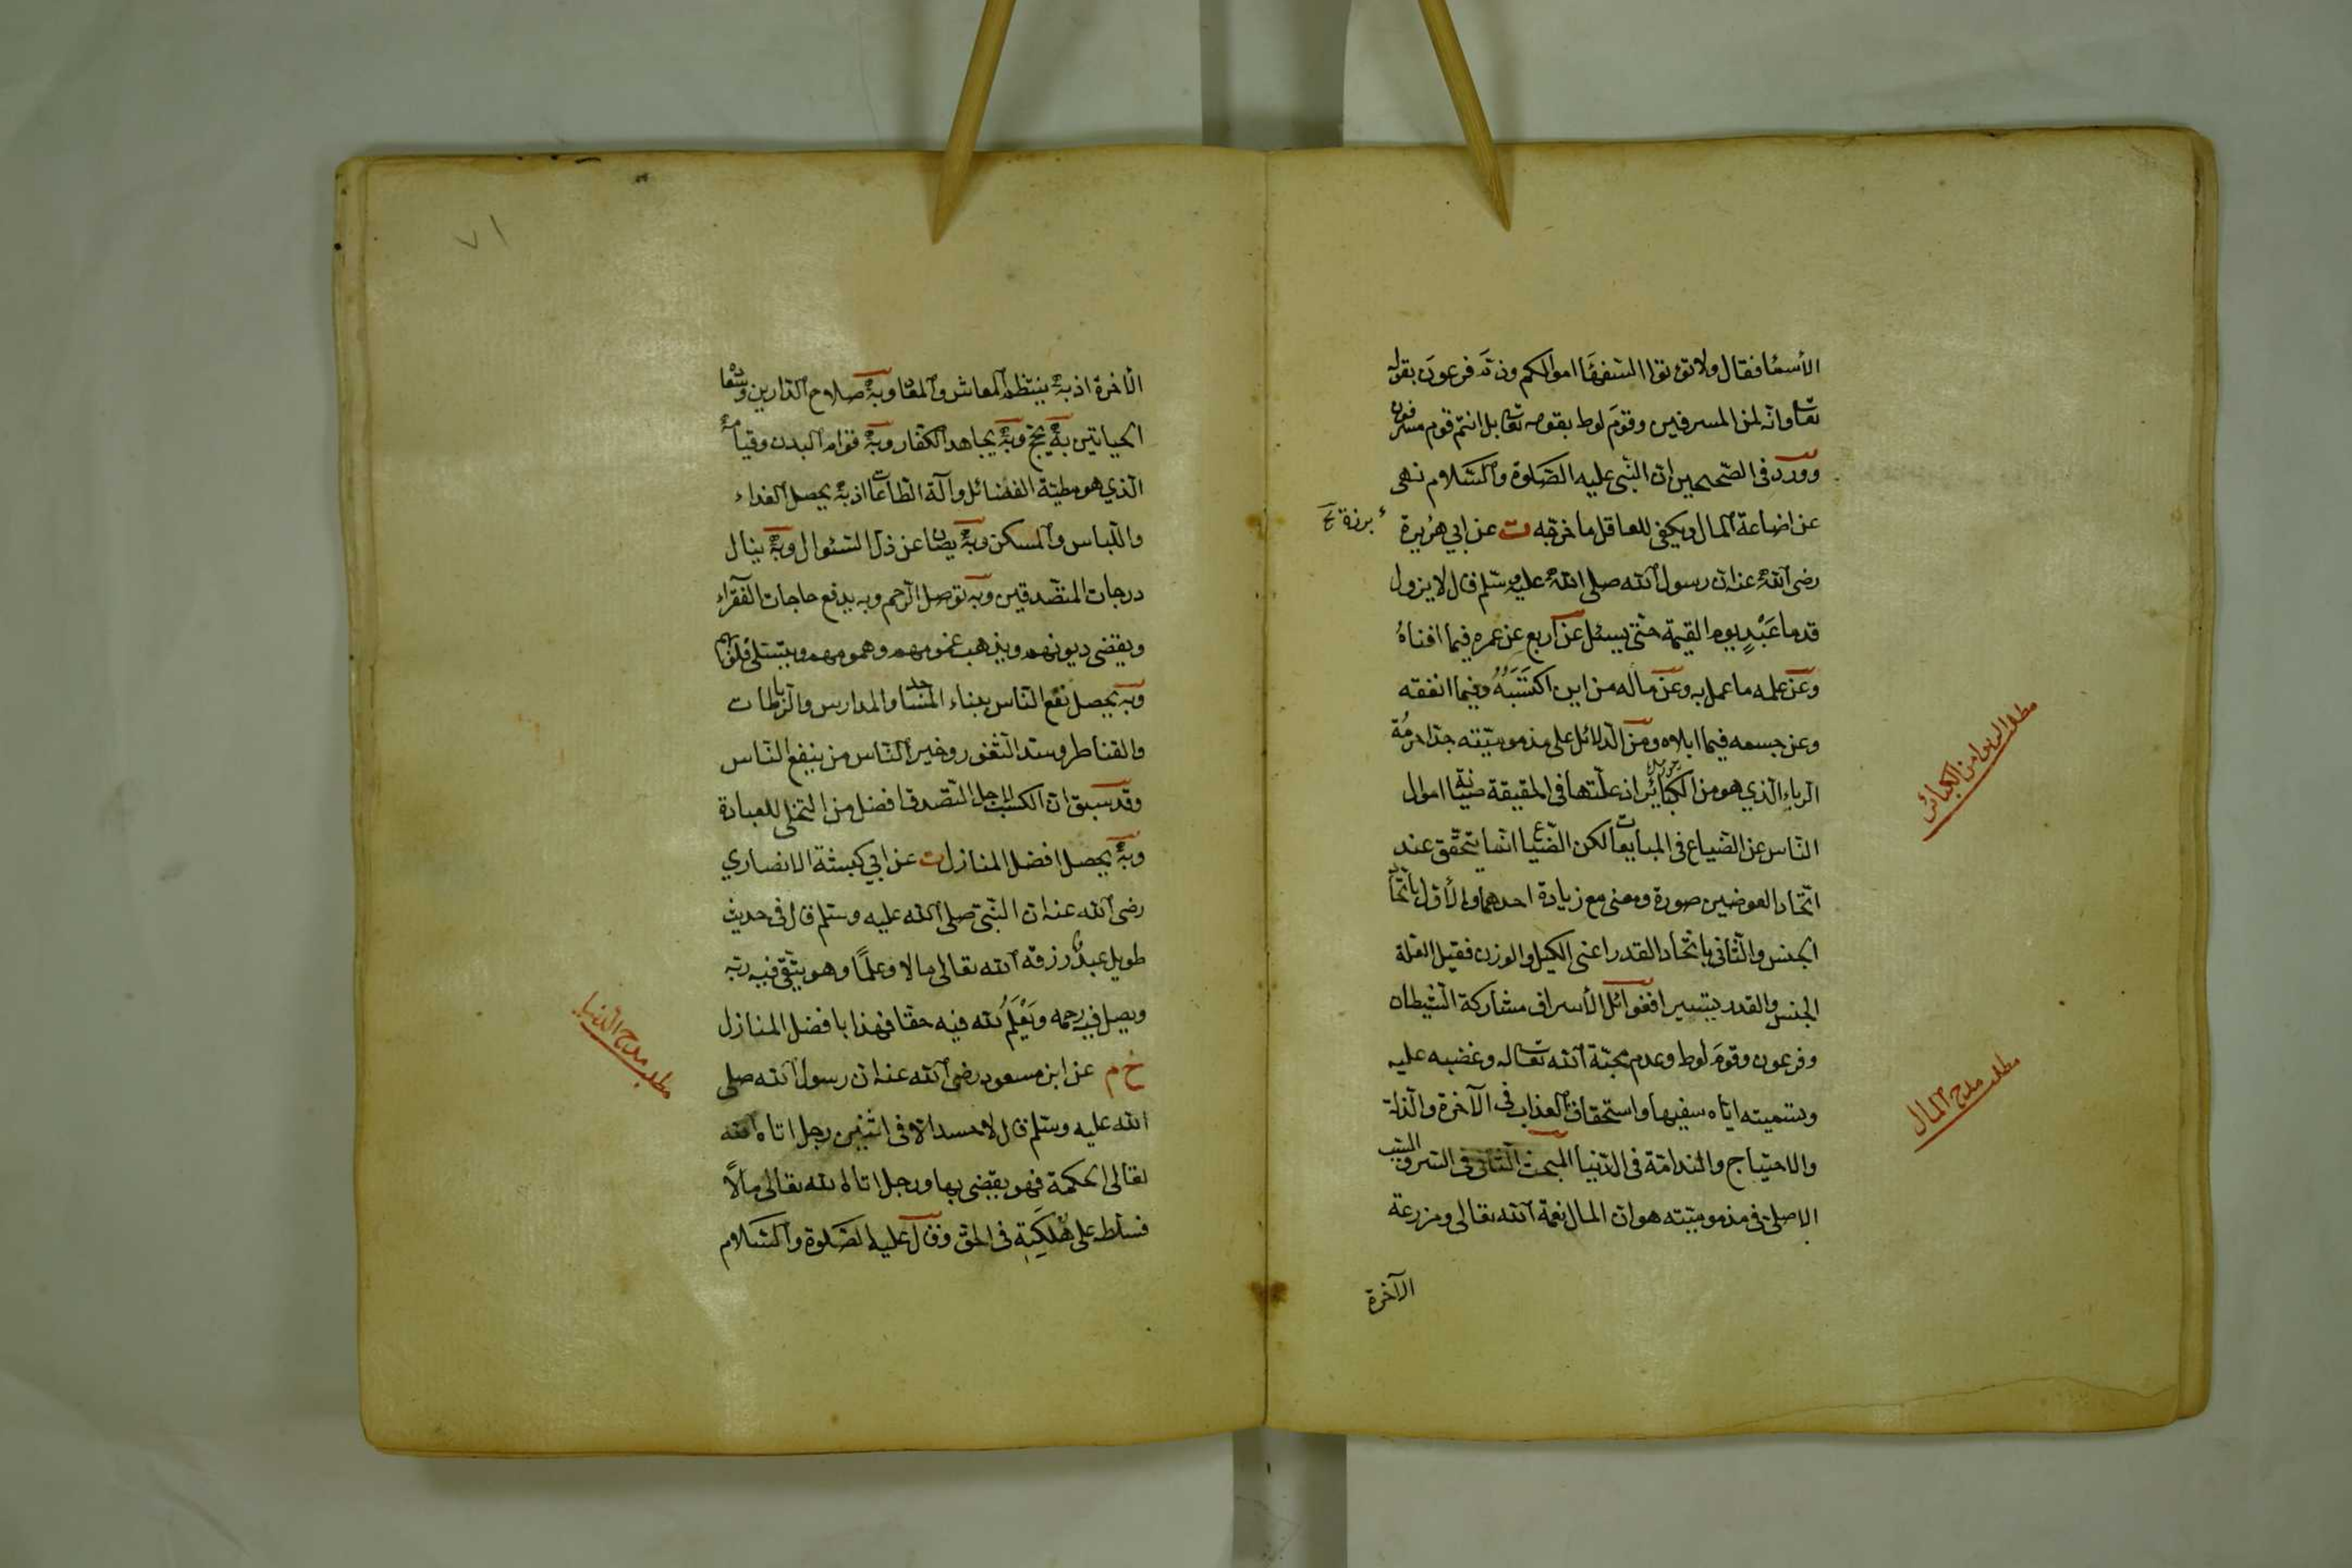 الأسماء فقال ولا تؤتوا السفهاء اموالكم وذمّ فرعون بقوله
تعا وانّه لمن المسرفين وقوم لوط بقوله تعا بل انتم قوم مسرفون
وورد فى الصّحيحين ان النّبى عليه الصّلوة والسّلام نهى
عن اضاعة المال ويكفى للعاقل ما خرّجه ت عن ابي هريرة
برزة
رضى الله عنه ان رسول الله صلى الله عليه وسلم قال لا يزول
قدما عَبْدٍ يوم القيمة حتّى يسئل عن اربع عن عمره فيما افناهُ
وعن علمه ما عمل به وعن ماله من اين اكتسبهُ وفيما انفقه
وعن جسمه فيما ابلاه ومن الدّلائل على مذموميّته جدّا حرمة
الرباء الّذي هو من الكبائر اذ علّتها فى الحقيقة صيانة اموال
النّاس عن الضّياع فى المبايعات لكن الضّياع انّما يتحقّق عند
اتّحاد العوضين صورة ومعنى مع زيادة احدهما والأوّل باتّحاد
الجنس والثّانى باتّحاد القدر اعنى الكيل والوزن فقيل العلّة
الجنس والقدر تيسيرا فغوائل الأسراف مشاركة الشّيطان
وفرعون وقوم لوط وعدم محبّة الله تعا له وغضبه عليه
وتسميته ايّاه سفيها واستحقاق العذاب فى الآخرة والذلّة
والاحتياج والنّدامة فى الدّنيا المبحث الثّانى فى السّر والسّبب
الاصلىّ فى مذموميّته هو ان المال نعمة الله تعالى ومزرعة
الآخرة
مطلب الربوا من الكبائر
مطلب مدح المال
٧١
الآخرة اذ به ينتظم المعاش والمعاد وبه صلاح الدّارين وسعادة
الحياتين به يحجّ وبه يجاهد الكفّار وبه قوام البدن وقيامه
الّذي هو مطيّة الفضائل وآلة الطّاعات اذ به يحصل الغداء
واللّباس والمسكن وبه يصان عن ذلّ السّئوال وبه ينال
درجات المتصّدقين وبه توصل الرّحم وبه يدفع حاجات الفقراء
ويقضى ديونهم ويذهب غمومهم وهمومهم ويتسلّى قلوبهم
وبه يحصل نفع النّاس ببناء المساجد والمدارس والرّباطات
والقناطر وسدّ الثّغور وخير النّاس من ينفع النّاس
وقد سبق انّ الكسب لاجل التّصدق افضل من التخلّى للعبادة
وبه يحصل افضل المنازل ت عن ابي كبشة الانصاري
رضى الله عنه ان النّبىّ صلى الله عليه وسلم قال فى حديث
طويل عبدٌ رزقه الله تعالى مالا وعلمًا وهو يتّقى فيه ربّه
ويصل فيه رحمه ويَعْلَمُ لله فيه حقّا فهذا بافضل المنازل
خ م عن ابن مسعود رضى الله عنه ان رسول الله صلى
الله عليه وسلم قال لا حسد الّا فى اثنين رجل اتاه الله
تعالى الحكمة فهو يقضى بها ورجل اتاه الله تعالى مالًا
فسلّط على هَلَكَتِهِ فى الحقّ وقال عليه الصّلوة والسّلام
مطلب مدح الدّنيا